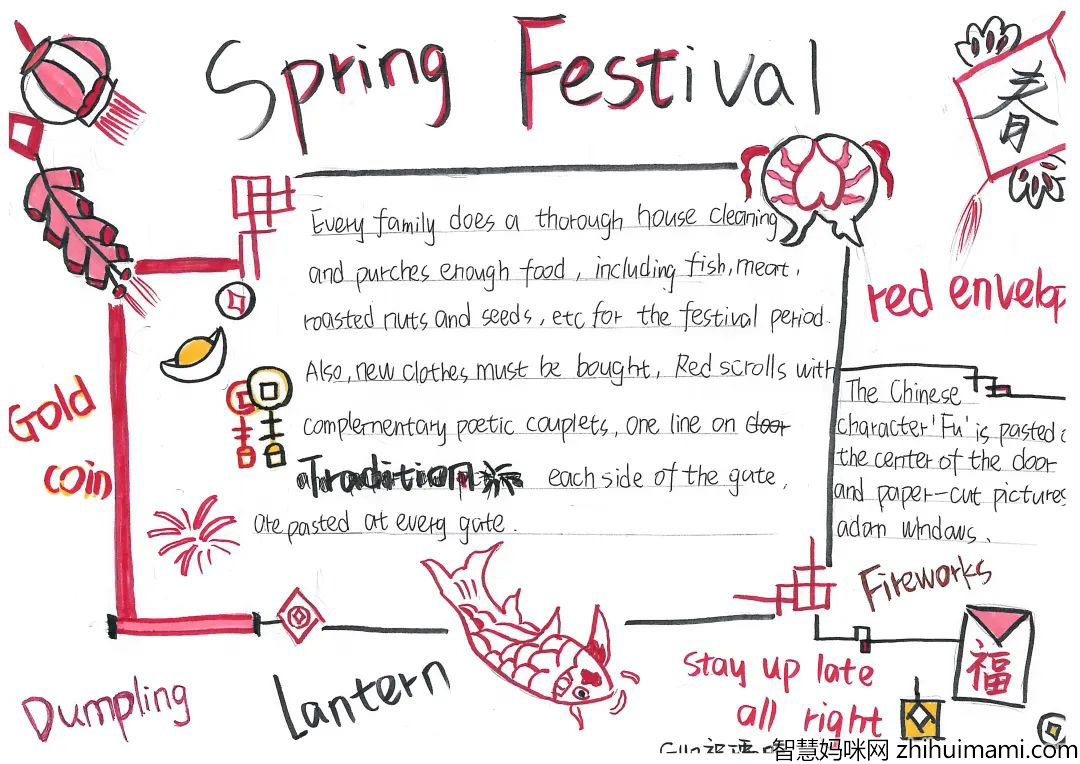 Spring Festival
春
Every family does a thorough house cleaning
and purches enough food, including fish, meat,
roasted nuts and seeds, etc for the festival period.
Also, new clothes must be bought, Red scrolls with
complementary poetic couplets, one line on door
Tradition each side of the gate,
are pasted at every gate.
red envelop
Gold
coin
The Chinese
character 'Fu' is pasted
the center of the door
and paper-cut pictures
adorn windows.
Fireworks
福
Dumpling
Lantern
Stay up late
all right
智慧妈咪网 zhihuimami.com